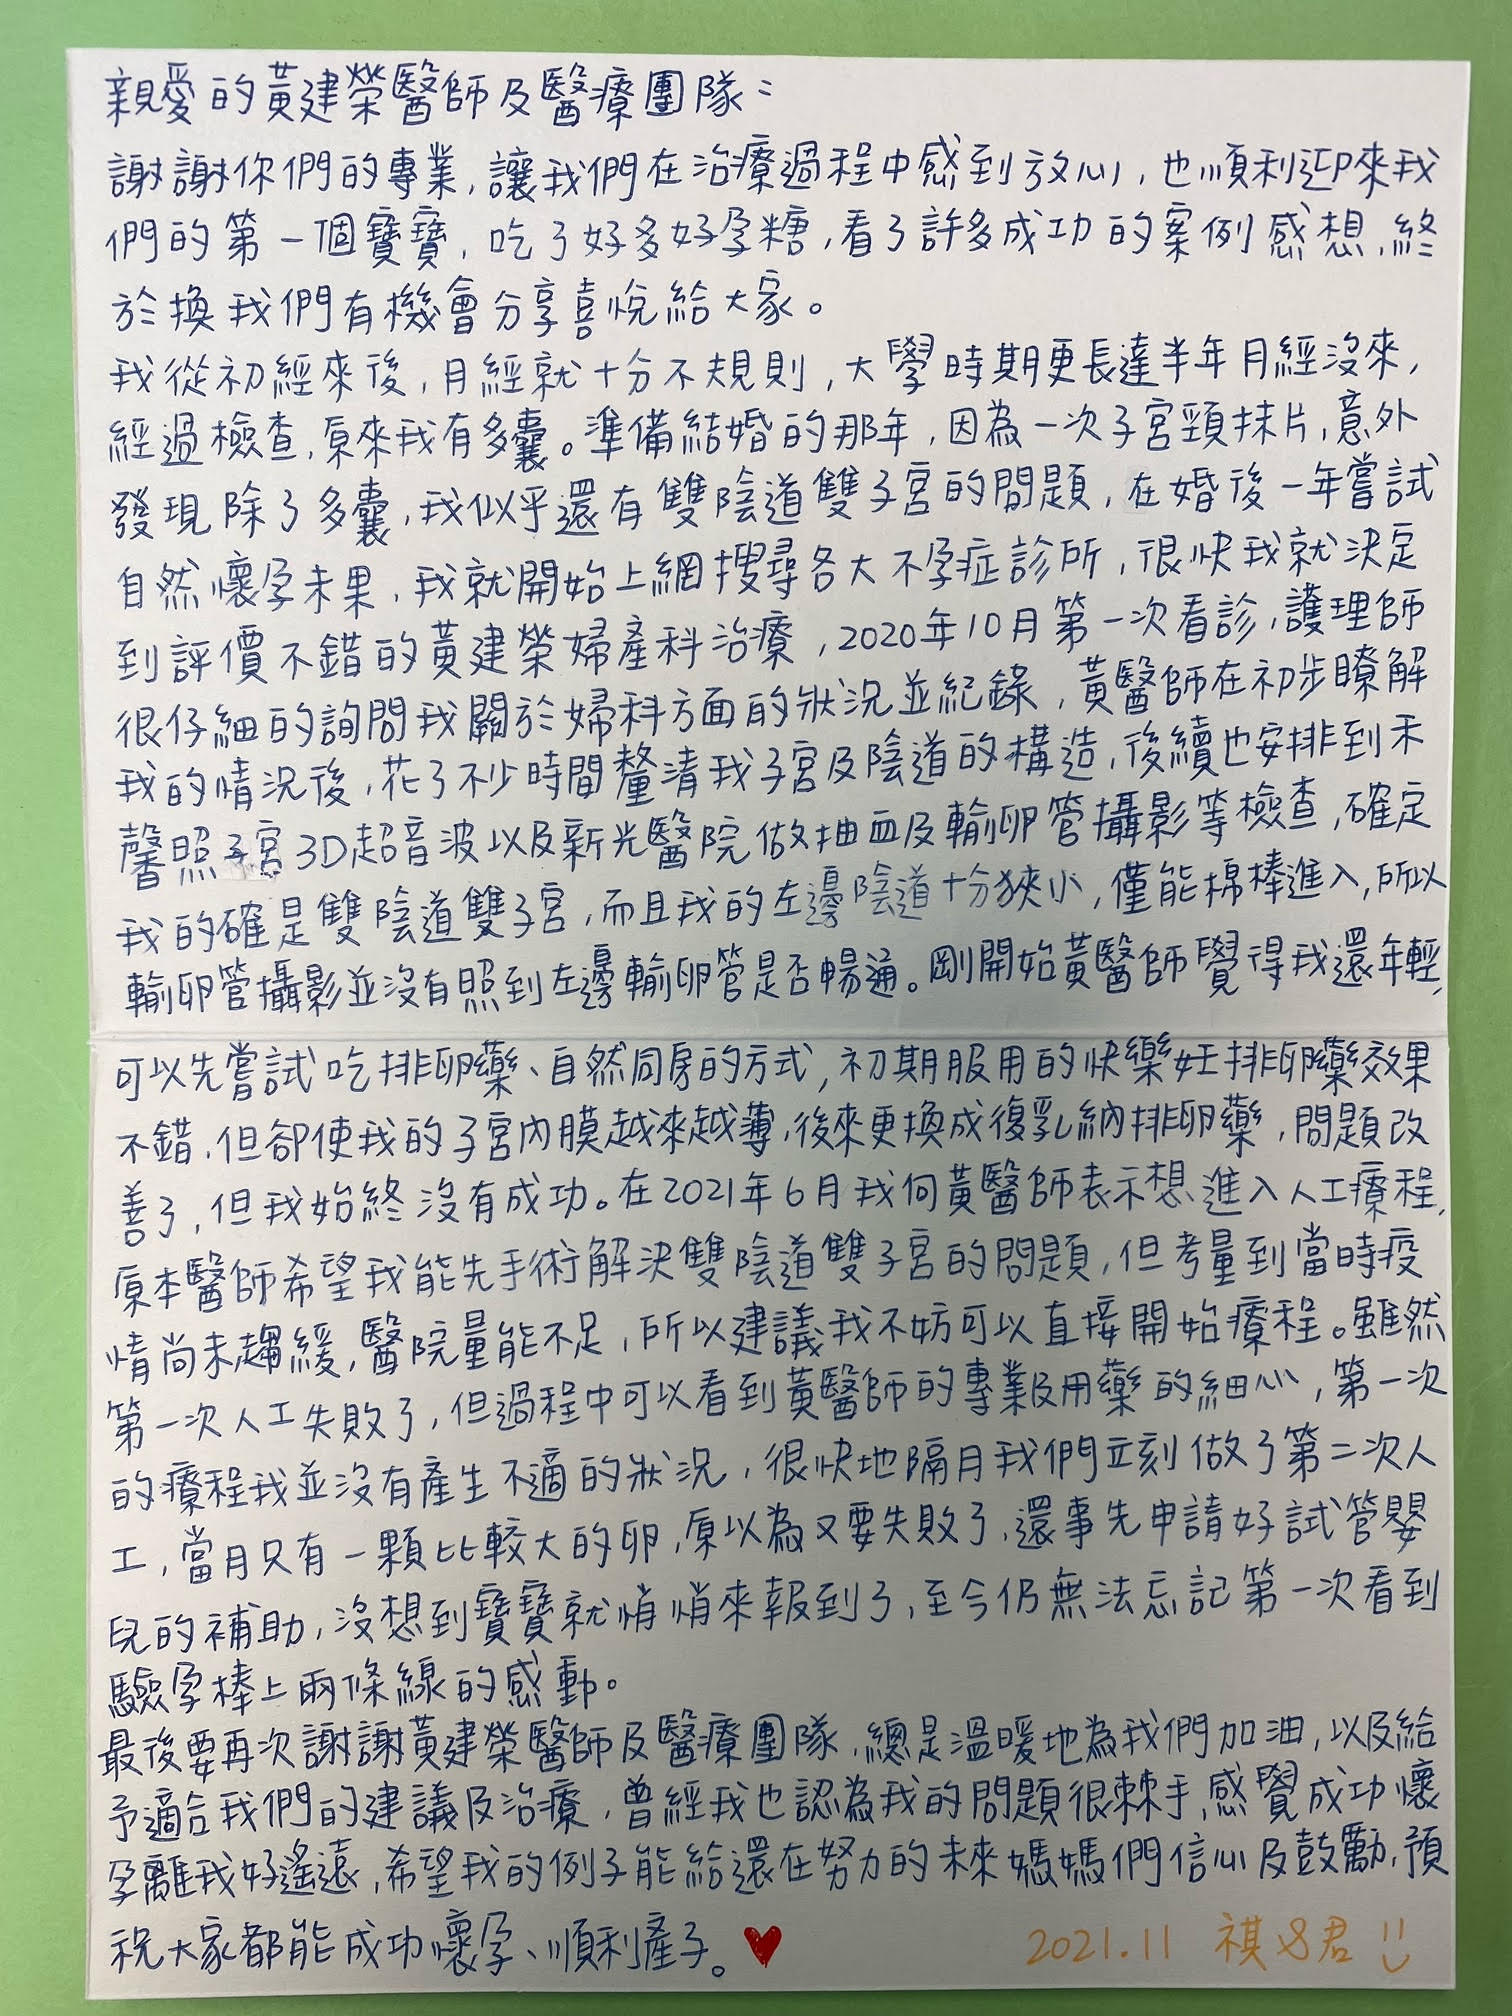 親愛的黃建榮醫師及醫療團隊：
謝謝你們的專業，讓我們在治療過程中感到放心，也順利迎來我
們的第一個寶寶，吃了好多好孕糖，看了許多成功的案例感想，終
於換我們有機會分享喜悅給大家。
我從初經來後，月經就十分不規則，大學時期更長達半年月經沒來，
經過檢查，原來我有多囊。準備結婚的那年，因為一次子宮頸抹片，意外
發現除了多囊，我似乎還有雙陰道雙子宮的問題，在婚後一年嘗試
自然懷孕未果，我就開始上網搜尋各大不孕症診所，很快我就決定
到評價不錯的黃建榮婦產科治療，2020年10月第一次看診，護理師
很仔細的詢問我關於婦科方面的狀況並紀錄，黃醫師在初步瞭解
我的情況後，花了不少時間釐清我子宮及陰道的構造，後續也安排到禾
馨照子宮3D超音波以及新光醫院做抽血及輸卵管攝影等檢查，確定
我的確是雙陰道雙子宮，而且我的左邊陰道十分狹小，僅能棉棒進入，所以
輸卵管攝影並沒有照到左邊輸卵管是否暢通。剛開始黃醫師覺得我還年輕，
可以先嘗試吃排卵藥、自然同房的方式，初期服用的快樂妊排卵藥效果
不錯，但卻使我的子宮內膜越來越薄，後來更換成復乳納排卵藥，問題改
善了，但我始終沒有成功。在2021年6月我向黃醫師表示想進入人工療程，
原本醫師希望我能先手術解決雙陰道雙子宮的問題，但考量到當時疫
情尚未趨緩，醫院量能不足，所以建議我不妨可以直接開始療程。雖然
第一次人工失敗了，但過程中可以看到黃醫師的專業及用藥的細心，第一次
的療程我並沒有產生不適的狀況，很快地隔月我們立刻做了第二次人
工，當月只有一顆比較大的卵，原以為又要失敗了，還事先申請好試管嬰
兒的補助，沒想到寶寶就悄悄來報到了，至今仍無法忘記第一次看到
驗孕棒上兩條線的感動。
最後要再次謝謝黃建榮醫師及醫療團隊，總是溫暖地為我們加油，以及給
予適合我們的建議及治療，曾經我也認為我的問題很棘手，感覺成功懷
孕離我好遙遠，希望我的例子能給還在努力的未來媽媽們信心及鼓勵，預
祝大家都能成功懷孕、順利產子。♥
2021.11 祺&君